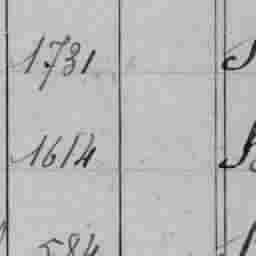 1731
1614
584